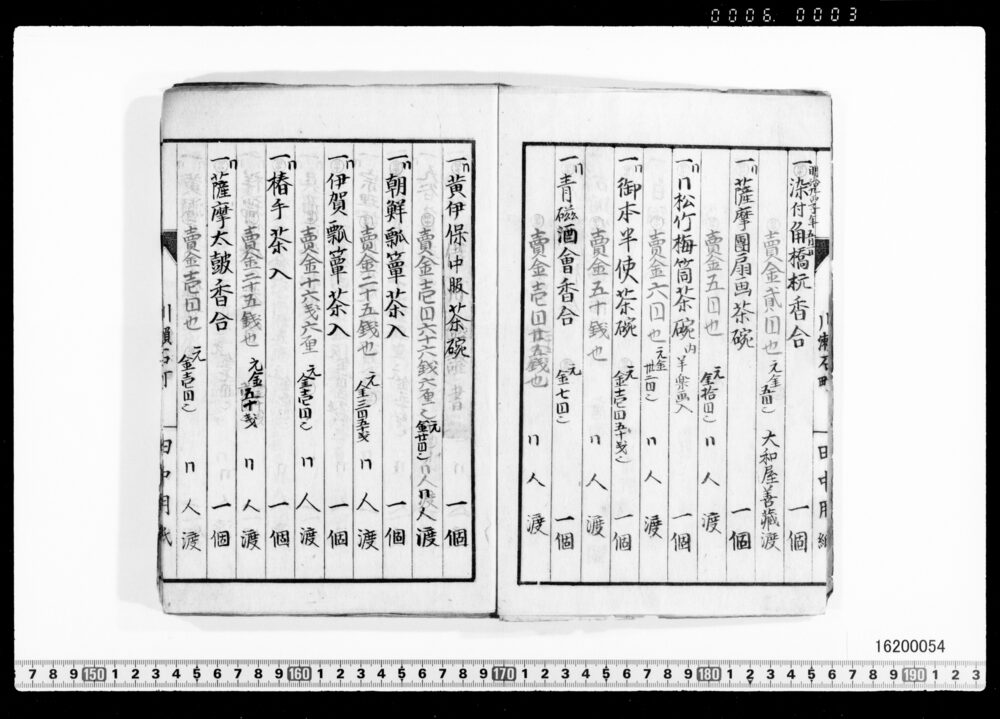 0006. 0003
一 染付角橋杭香合 一個
賣金貳円也 元金五円 大和屋善藏渡
一〃 薩摩團扇画茶碗 一個
賣金五円也 元金拾円 〃人渡
一〃 〃松竹梅筒茶碗 内ニ羊樂画入 一個
賣金六円也 元金廿二円 〃人渡
一〃 御本半使茶碗 元金壱円五十戋 一個
賣金五十錢也 〃人渡
一〃 青磁酒會香合 元金七円 一個
賣金壱円廿五錢也 〃人渡
一〃 黄伊保中服茶碗 一個
賣金壱円六十六錢六重 元金廿円 〃人渡
一〃 朝鮮瓢簞茶入 一個
賣金二十五錢也 元金三円五十戋 〃人渡
一〃 伊賀瓢簞茶入 一個
賣金十六戋六重 元金壱円 〃人渡
一〃 椿手茶入 一個
賣金二十五錢也 元金五十戋 〃人渡
一〃 薩摩太皷香合 一個
賣金壱円也 元金壱円 〃人渡
16200054
7 8 9 150 1 2 3 4 5 6 7 8 9 160 1 2 3 4 5 6 7 8 9 170 1 2 3 4 5 6 7 8 9 180 1 2 3 4 5 6 7 8 9 190 1 2 3